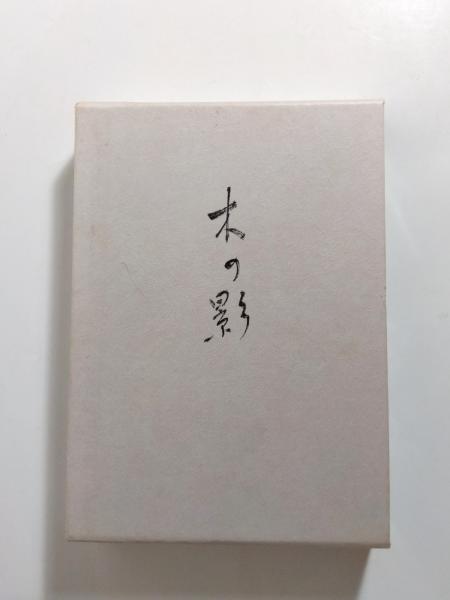 木の影